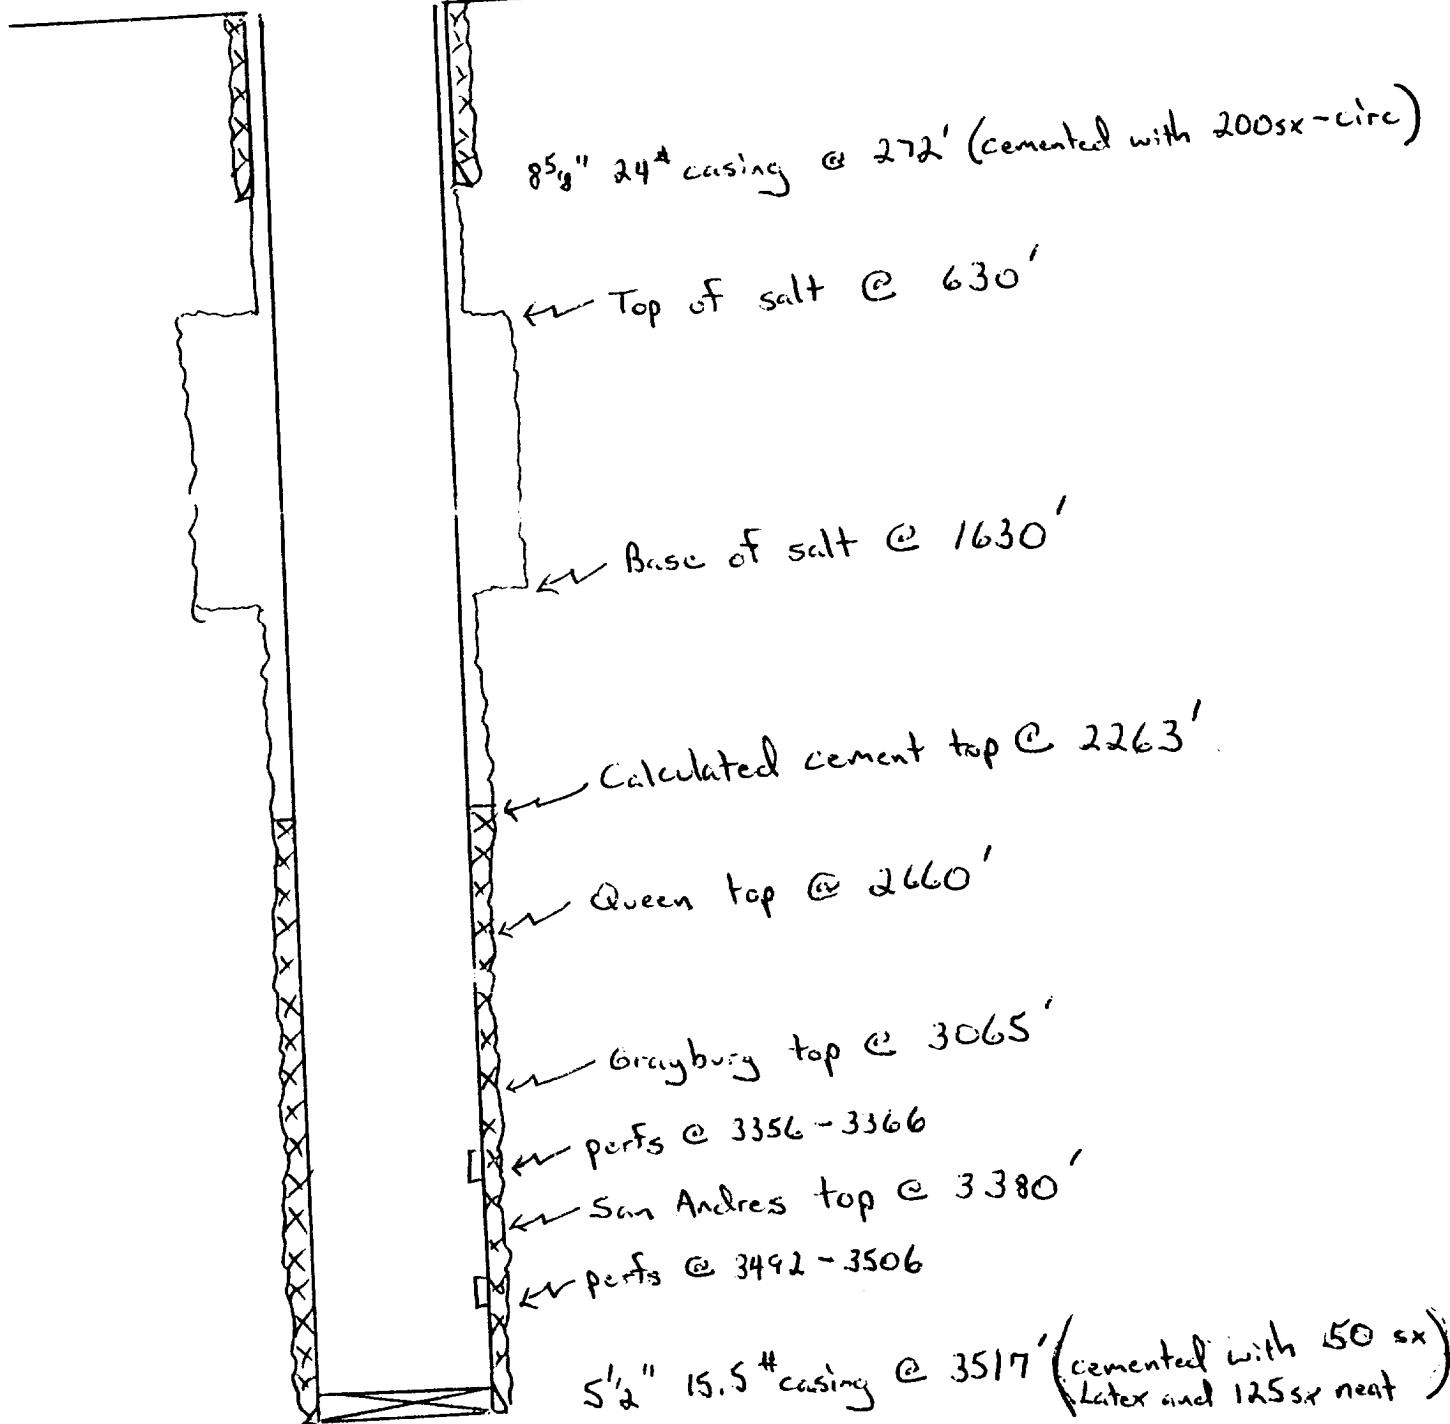 8 5/8" 24# casing @ 272' (cemented with 200sx-circ)
Top of salt @ 630'
Base of salt @ 1630'
Calculated cement top @ 2263'
Queen top @ 2660'
Grayburg top @ 3065'
perfs @ 3356-3366
San Andres top @ 3380'
perfs @ 3492-3506
5 1/2" 15.5# casing @ 3517' (cemented with 50 sx
Latex and 125sx neat)